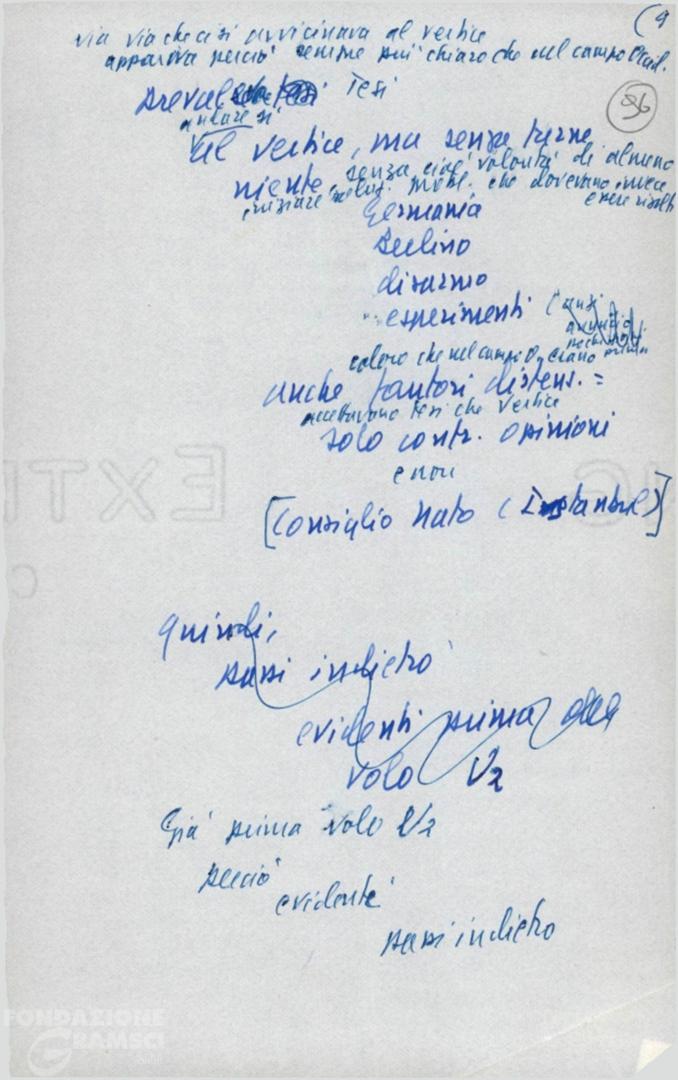 (9
via via che ci si avvicinava al vertice
appariva perciò sempre più chiaro che nel campo Occid.
96
prevale tesi
andare si
al vertice, ma senza farne
niente, senza cioè volontà di almeno
iniziare soluz. probl. che dovevano invece
essere risolti
Germania
Berlino
disarmo
esperimenti (anzi
annunzio
coloro che nel campo O. erano prima
anche fautori distens. =
accettavano tesi che vertice
solo contr. opinioni
e non
[Consiglio Nato (Istanbul)]
quindi,
passi indietro
evidenti prima
volo U2
già prima volo U2
perciò
evidente
passi indietro
FONDAZIONE
GRAMSCI